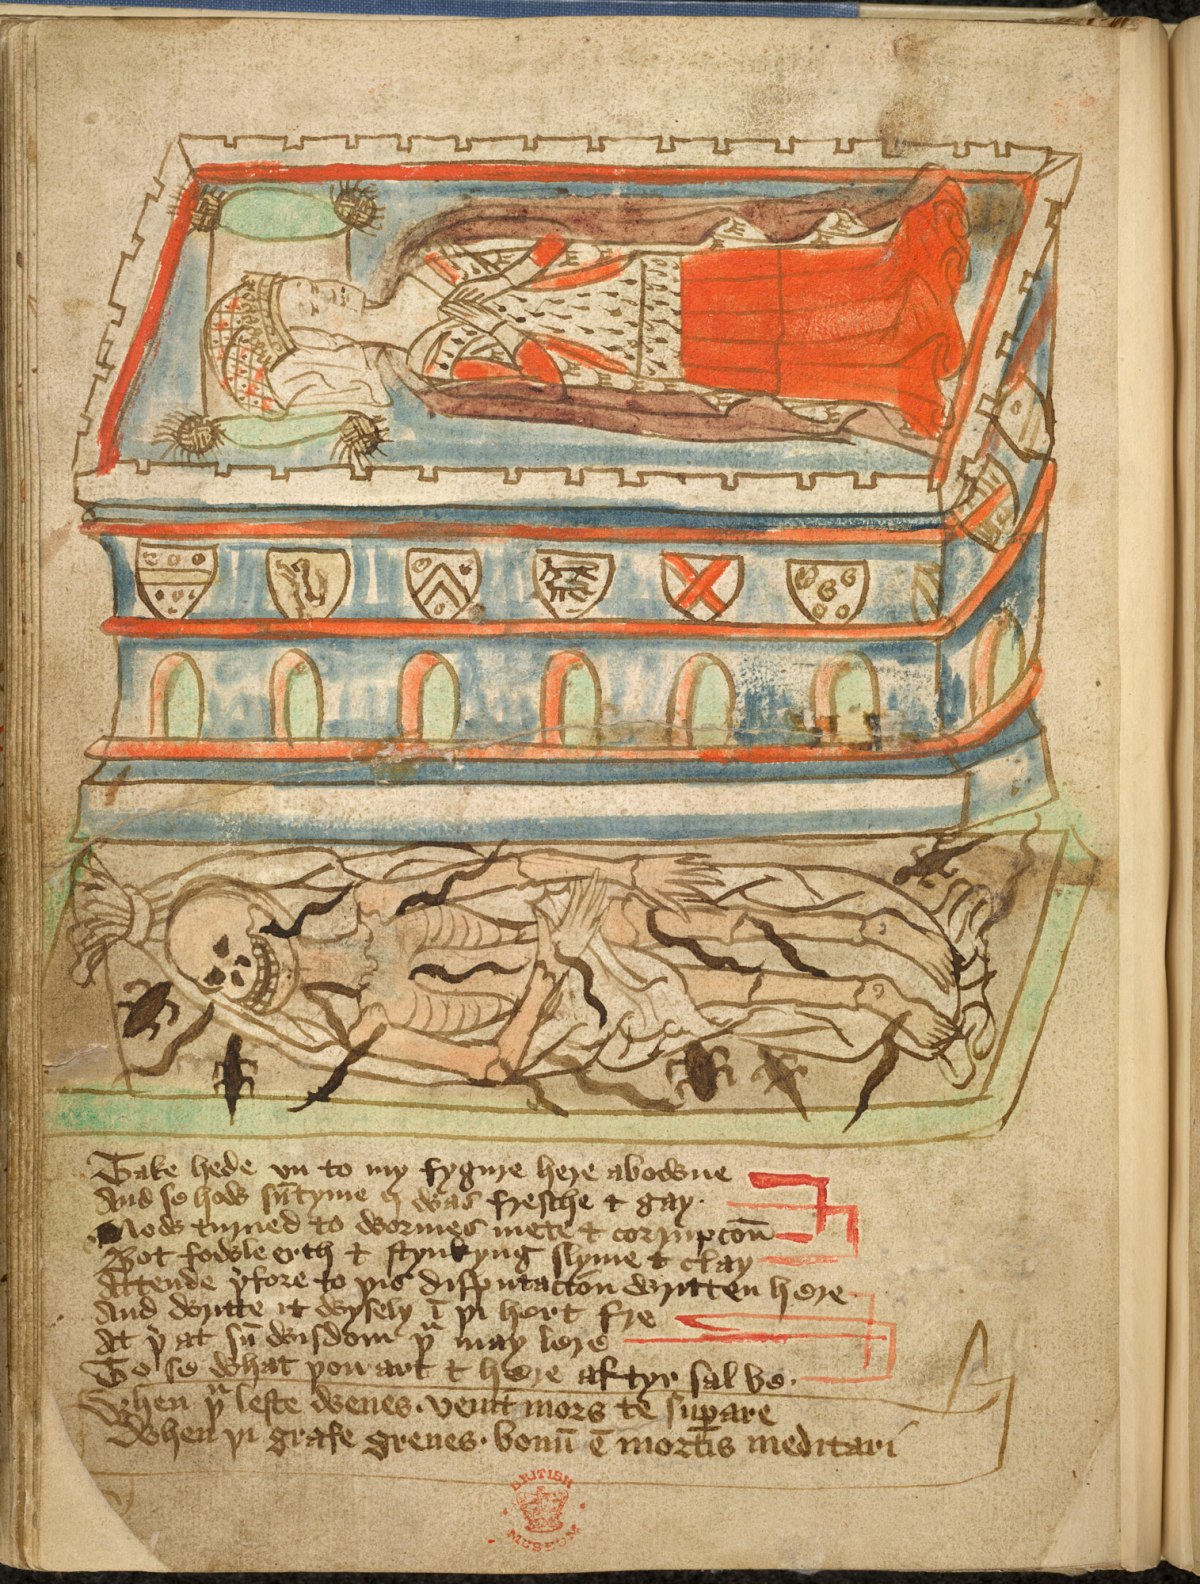 Take hede vn to my fygure here abowne
And se how sūtyme I was fresche & gay.
Now turned to wormes mete & corrupcoū
Bot fowle erth & stynkyng slyme & clay
Attende þfore to þis disputacion written here
And writte it wysely ī þi hert fre
At þ at sū wisdom þu may lere
To se what þou art & here aftyr sal be.
When þu leste wenes. venit mors te suꝑare
When þi grafe grenes. bonū ē mortis meditari
BRITISH
MUSEUM